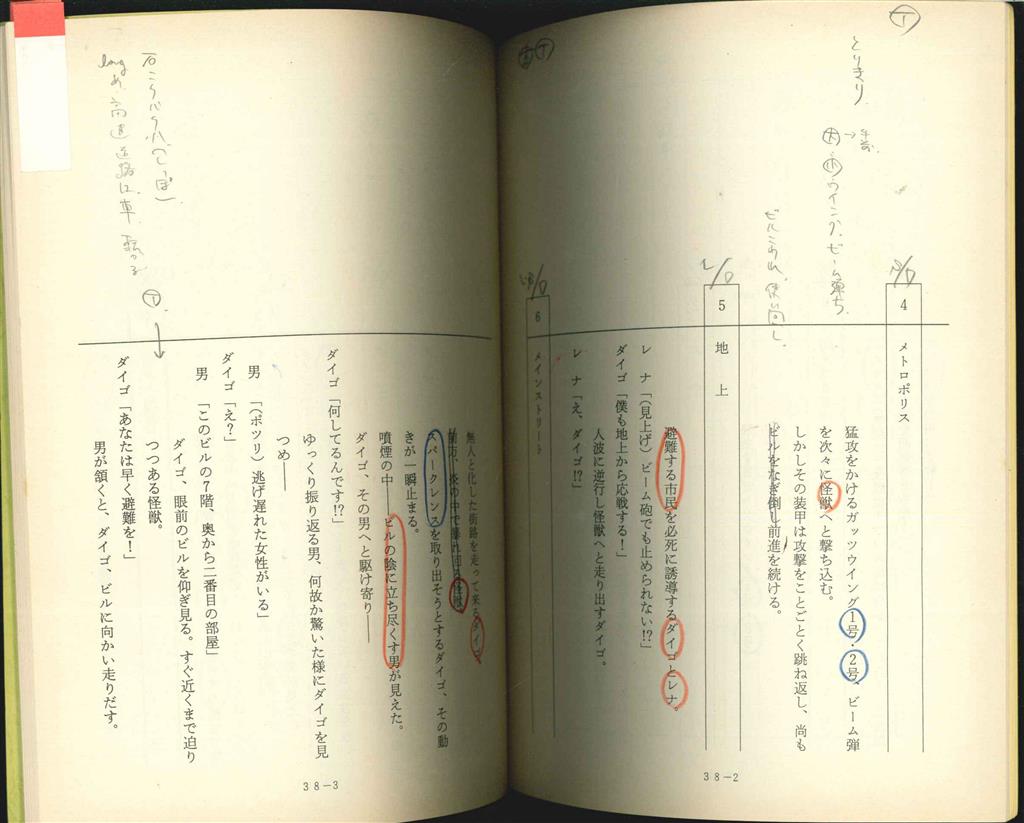 4
メトロポリス
猛攻をかけるガッツウイング1号・2号、ビーム弾
を次々に怪獣へと撃ち込む。
しかしその装甲は攻撃をことごとく跳ね返し、尚も
ビルをなぎ倒し前進を続ける。
5
地上
避難する市民を必死に誘導するダイゴとレナ。
レナ「(見上げ)ビーム砲でも止められない!?」
ダイゴ「僕も地上から応戦する!」
人波に逆行し怪獣へと走り出すダイゴ。
レナ「え、ダイゴ!?」
6
メインストリート
38-2
T
とりきり
→手前
ウイング、ビーム弾ち
ビルこわれ、使い回し
無人と化した街路を走って来るダイゴ
前方、炎の中で暴れ回る怪獣
スパークレンスを取り出そうとするダイゴ、その動
きが一瞬止まる。
噴煙の中――ビルの陰に立ち尽くす男が見えた。
ダイゴ、その男へと駆け寄り――
ダイゴ「何してるんです!?」
ゆっくり振り返る男、何故か驚いた様にダイゴを見
つめ――
男「(ポツリ)逃げ遅れた女性がいる」
ダイゴ「え?」
男「このビルの7階、奥から二番目の部屋」
ダイゴ、眼前のビルを仰ぎ見る。すぐ近くまで迫り
つつある怪獣。
ダイゴ「あなたは早く避難を!」
男が頷くと、ダイゴ、ビルに向かい走りだす。
38-3
long め 高速道路は車
T